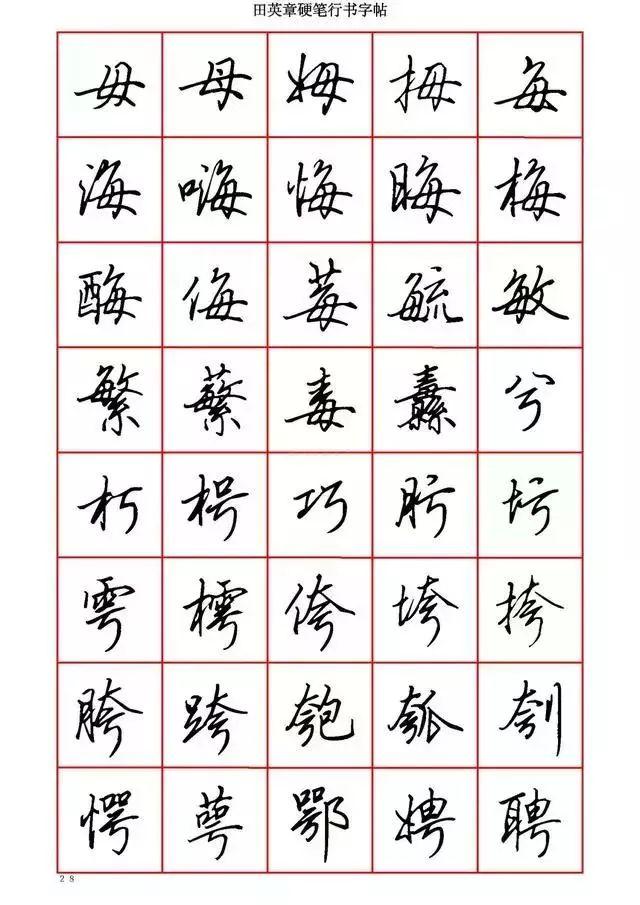 田英章硬笔行书字帖
毋母姆拇每
海嗨悔晦梅
酶侮莓毓敏
繁蘩毒纛兮
朽枵巧肟圬
雩樗侉垮挎
胯跨匏瓠刳
愕萼鄂娉聘
28